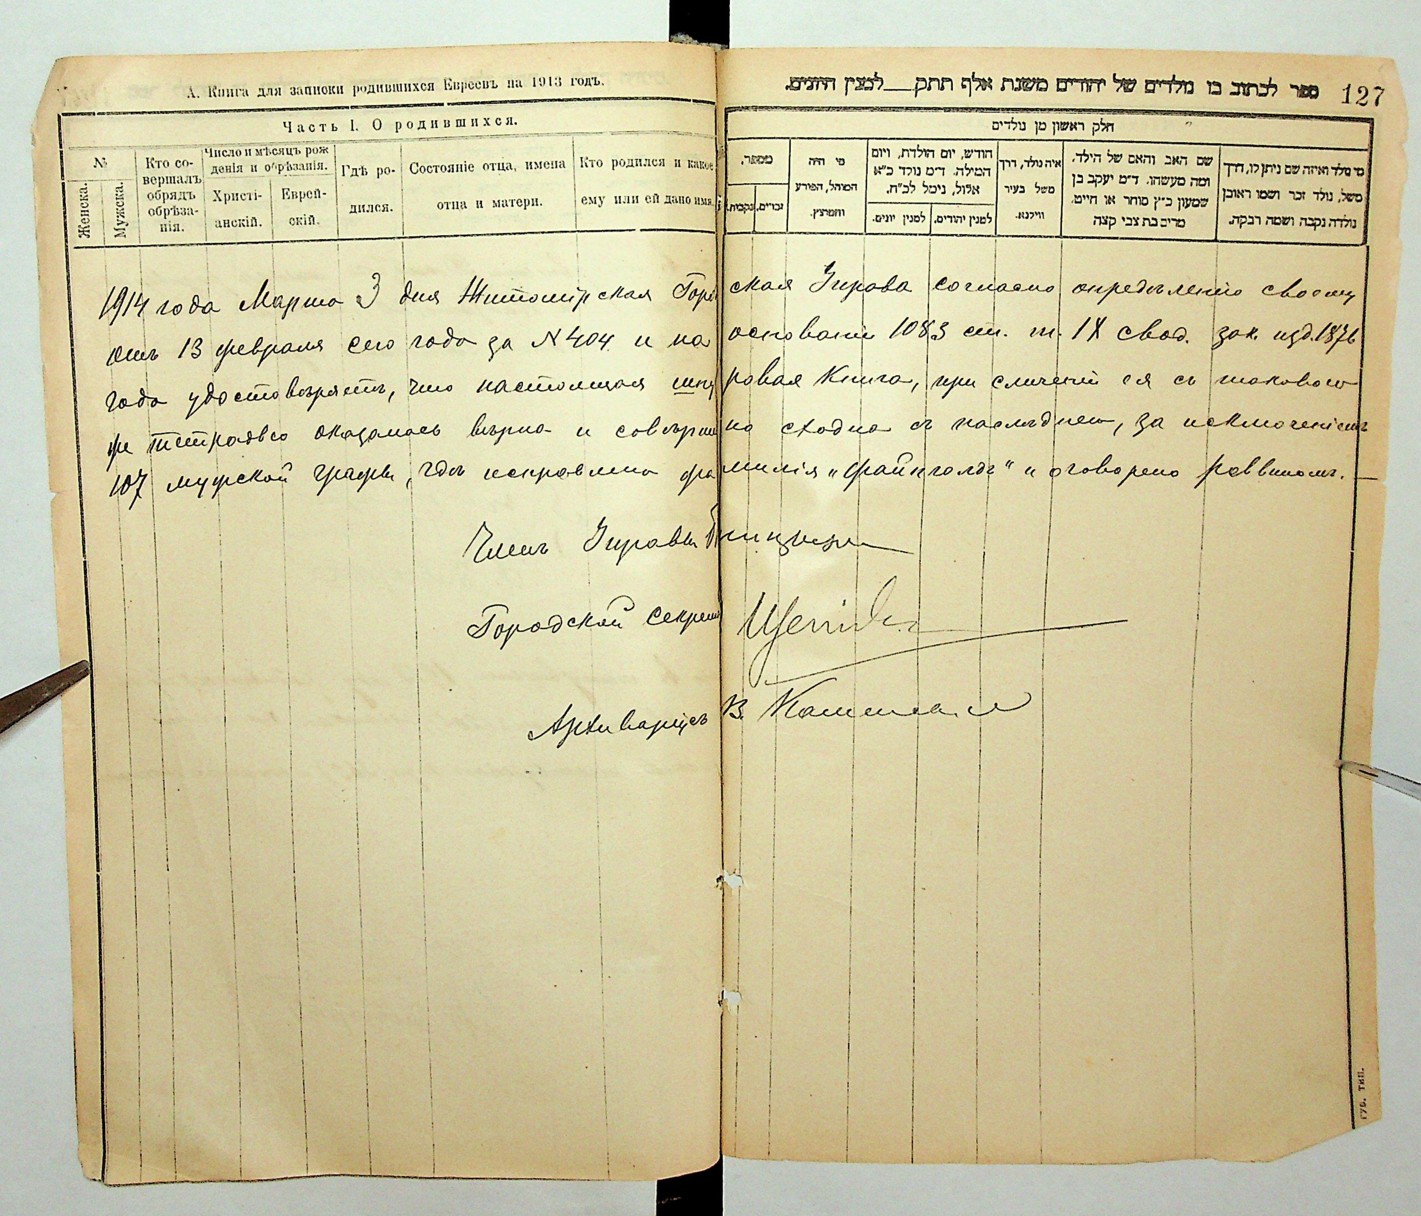 А. Книга для записки родившихся Евреевъ на 1913 годъ.
Часть I. О родившихся.
№
Женска.
Мужска.
Кто со-
вершалъ
обрядъ
обрѣза-
нія.
Число и мѣсяцъ рож
денія и обрѣзанія.
Христі-
анскій.
Еврей-
скій.
Гдѣ ро-
дился.
Состояніе отца, имена
отца и матери.
Кто родился и какое
ему или ей дано имя.
ספר לכתוב בו נולדים של יהודים משנת אלף תתק__למנין היונים.
127
חלק ראשון מן נולדים
מספר.
זכרים.
נקבות.
מי היה
המוהל, הפורע
והמוצץ.
חודש, יום הולדת, ויום
המילה. ד״מ נולד כ״א
אלול, נימל לכ״ח.
למנין יהודים.
למנין יונים.
איה נולד, דרך
משל בעיר
ווילנא.
שם האב והאם של הילד.
ומה מעשהו. ד״מ יעקב בן
שמעון כ״ץ סוחר או חייט.
מרים בת צבי קצה
מי נולד ואיזה שם ניתן לו, דרך
משל, נולד זכר ושמו ראובן
נולדה נקבה ושמה רבקה.
1914 года Марта 3 дня Житомірская Городская Управа согласно опредѣленію своему
отъ 13 февраля сего года за № 404 и на основаніи 1083 ст. т. IX свод. зак. изд. 1876
года удостовѣряетъ, что настоящая шнуровая Книга, при сличеніи ея съ таковою
же тетрадью оказалась вѣрна и совершенно сходна съ послѣднею, за исключеніемъ
107 мужской графы, гдѣ исправлена фамилія „Файнгольдъ" и оговорено раввиномъ.
Членъ Управы
Городской Секрет
Архиваріусъ В.
Губ. Тип.